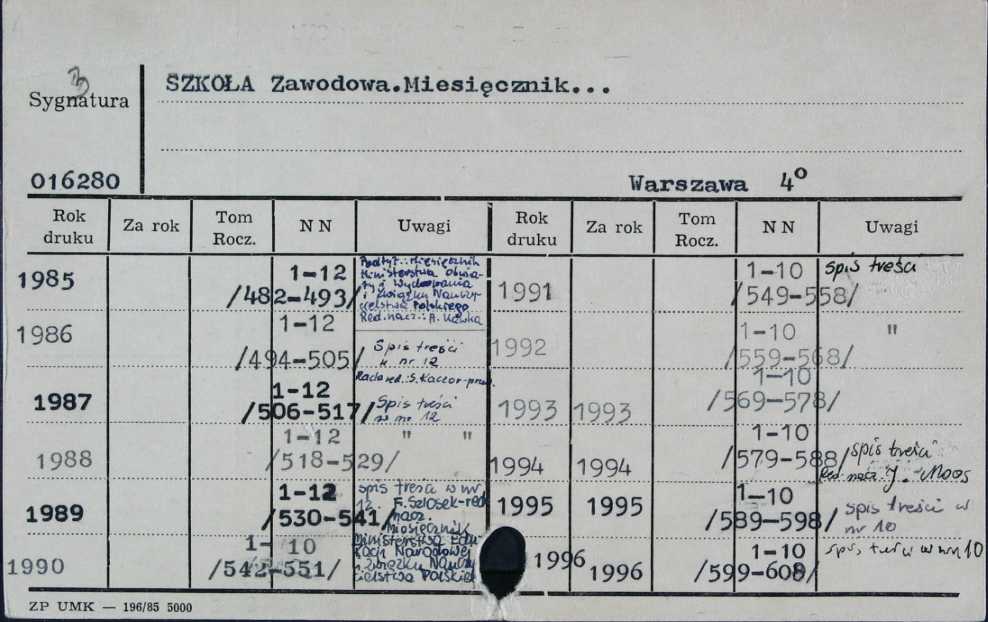 SZKOŁA Zawodowa.Miesięcznik...
Sygnatura
016280
Warszawa 4°
Rok druku Za rok Tom Rocz. N N Uwagi Rok druku Za rok Tom Rocz. N N Uwagi
1985 1-12 /482-493/
Podtyt.: Miesięcznik
Ministerstwa Oświa-
ty i Wychowania
i Związku Nauczy-
cielstwa Polskiego
Red. nacz.: A.
1986 1-12 /494-505/
Spis treści
w nr 12
1987 1-12 /506-517/
Rada red.: S. Kaczor-prze.
Spis treści
w nr 12
1988 1-12 /518-529/ " "
1989 1-12 /530-541/
spis treści w nr
12. F. Szlosek-red.
nacz.
Miesięcznik
1990 1- 10 /542-551/
Ministerstwa Edu-
kacji Narodowej
i Związku Nauczy-
cielstwa Polskie
1991 1-10 /549-558/ spis treści
1992 1-10 /559-568/ "
1993 1993 1-10 /569-578/
1994 1994 1-10 /579-588/ spis treści
Red. nacz. J. Moos
1995 1995 1-10 /589-598/ spis treści w
nr 10
1996 1996 1-10 /599-608/ spis treści w nr 10
ZP UMK — 196/85 5000